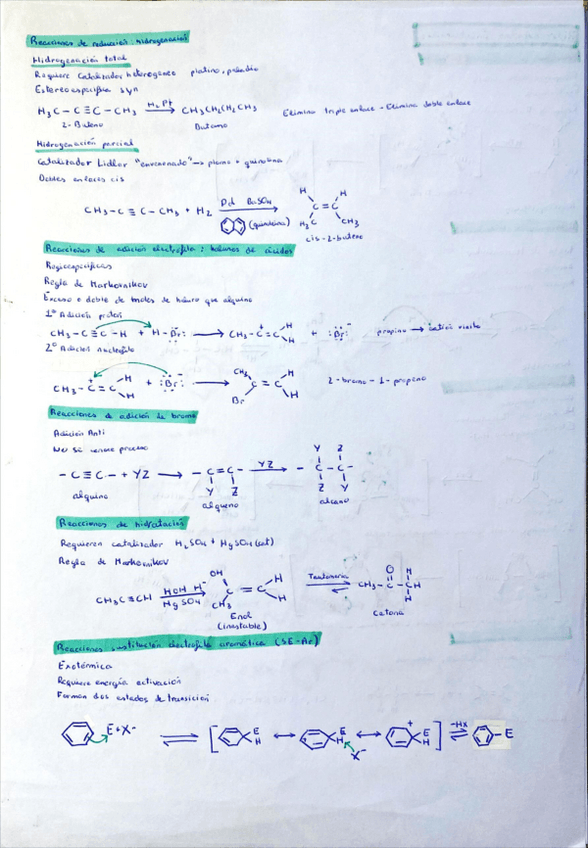 Reacciones de reducción: hidrogenación
Hidrogenación total
Requiere Catalizador heterogéneo platino, paladio
Estereoespecífica syn
H₃C – C ≡ C – CH₃ H₂ Pt → CH₃CH₂CH₂CH₃ Elimina triple enlace - Elimina doble enlace
2-Butino Butano
Hidrogenación parcial
Catalizador Lidlar "envenenado" → plomo + quinolina
Dobles enlaces cis
CH₃ – C ≡ C – CH₃ + H₂ Pd BaSO₄ → H H C = C H₃C CH₃
(quinoleina)
cis-2-buteno
Reacciones de adición electrófila: haluros de ácidos
Regioespecíficas
Regla de Markovnikov
Exceso o doble de moles de haluro que alquino
1º Adición protón
CH₃ – C ≡ C – H + H – Br: → CH₃ – C⁺ = C H H + :Br:⁻ propino → catión vinilo
2º Adición nucleófilo
CH₃ – C⁺ = C H H + :Br:⁻ → CH₃ Br C = C H H 2-bromo-1-propeno
Reacciones de adición de bromo
Adición Anti
– C ≡ C – + YZ → – C = C – Y Z YZ → Y Z – C – C – Z Y
alquino alqueno alcano
Reacciones de hidratación
Requieren catalizador H₂SO₄ + HgSO₄ (cat)
Regla de Markovnikov
CH₃C≡CH HOH H⁺ HgSO₄ → OH CH₃ C = C H H Tautomería ⇌ CH₃ – C – CH O H H
Enol Cetona
(inestable)
Reacciones sustitución electrófila aromática (SE-Ar)
Exotérmica
Requiere energía activación
Forman dos estados de transición
E⁺X⁻ ⇌ [ E H ↔ E H X⁻ ↔ + E H ] -HX ⇌ – E